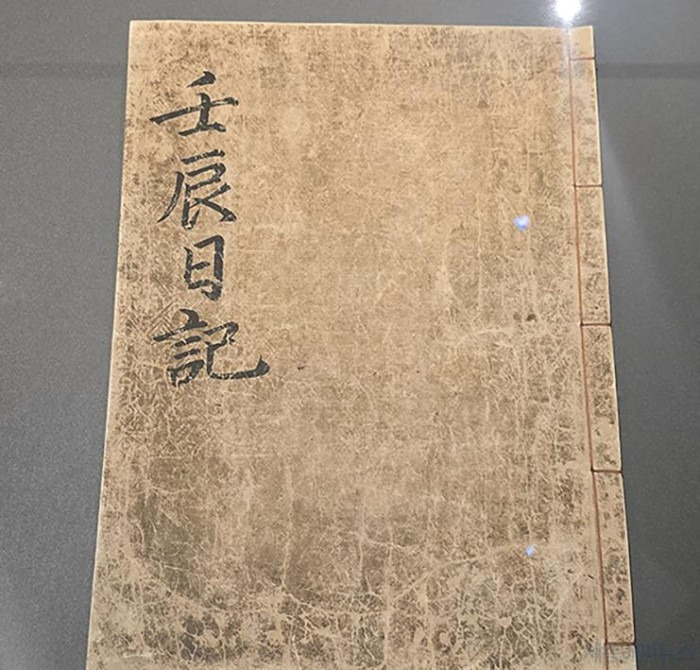 壬辰日記